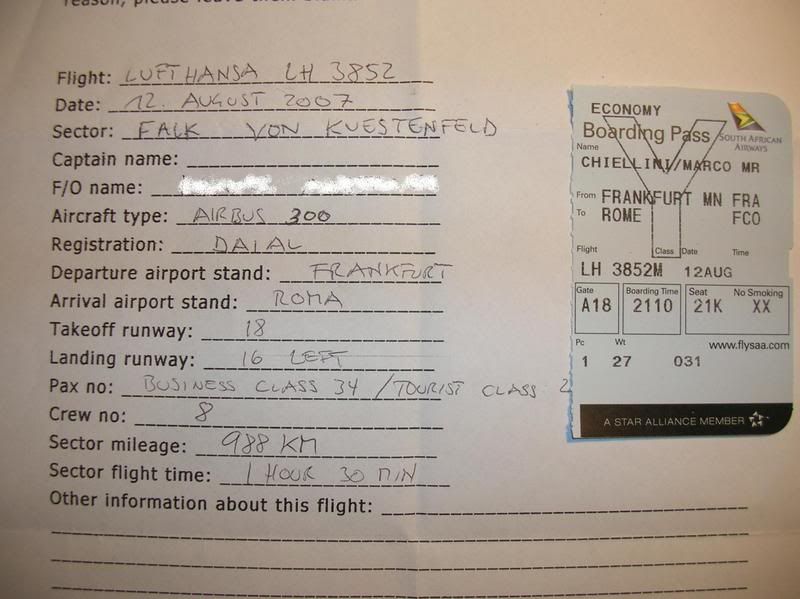 reason, please leave them blank.
Flight: LUFTHANSA LH 3852
Date: 12. AUGUST 2007
Sector: FALK VON KUESTENFELD
Captain name:
F/O name:
Aircraft type: AIRBUS 300
Registration: DAIAL
Departure airport stand: FRANKFURT
Arrival airport stand: ROMA
Takeoff runway: 18
Landing runway: 16 LEFT
Pax no: BUSINESS CLASS 34 / TOURIST CLASS 2
Crew no: 8
Sector mileage: 988 KM
Sector flight time: 1 HOUR 30 MIN
Other information about this flight:
ECONOMY
Boarding Pass
SOUTH AFRICAN
AIRWAYS
Name
CHIELLINI/MARCO MR
From FRANKFURT MN FRA
To ROME FCO
Flight Class Date Time
LH 3852M 12AUG
Gate Boarding Time Seat No Smoking
A18 2110 21K XX
Pc Wt www.flysaa.com
1 27 031
A STAR ALLIANCE MEMBER